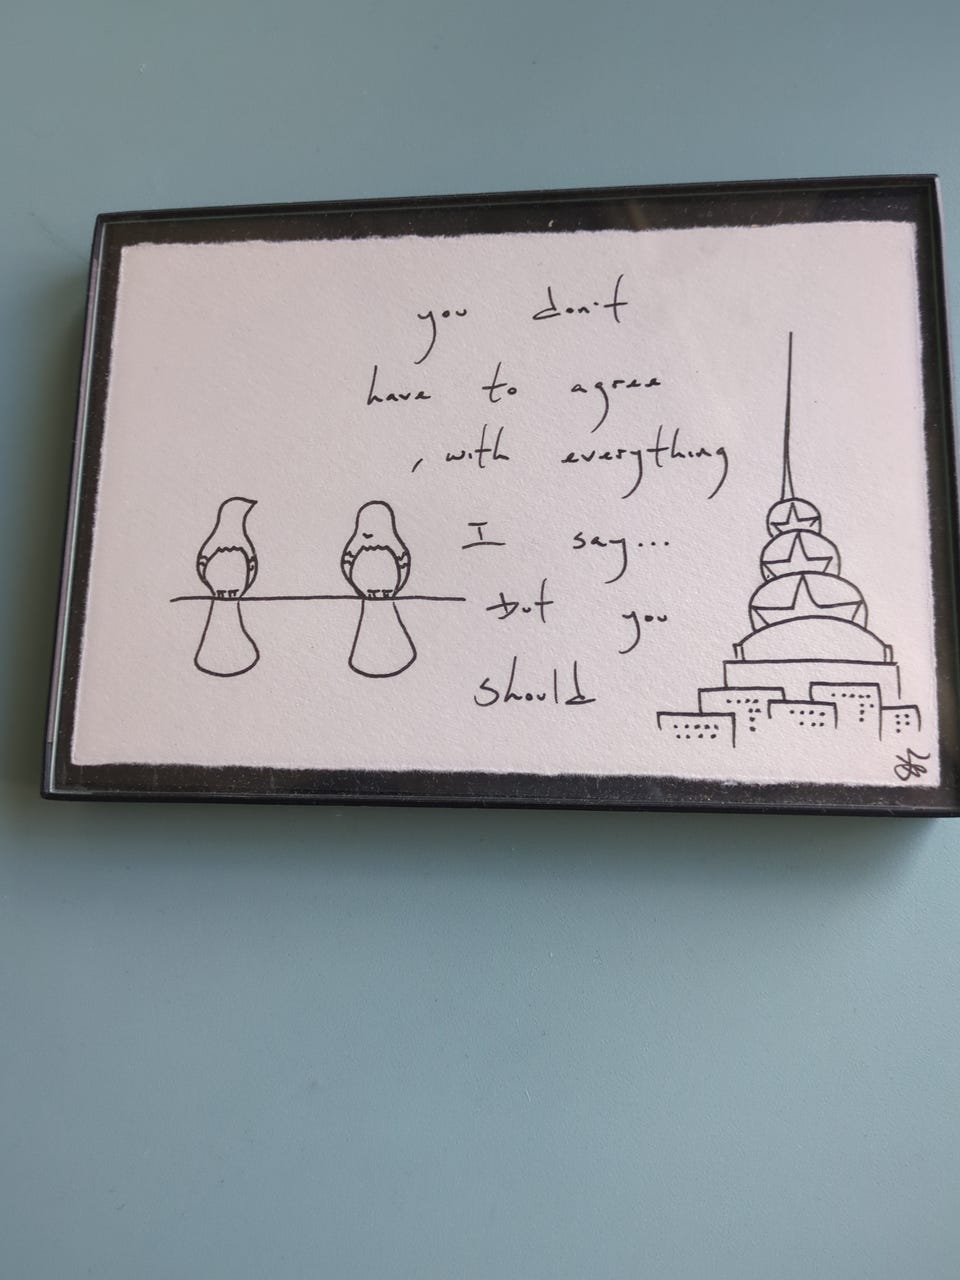 you don't
have to agree
, with everything
I say...
but you
should